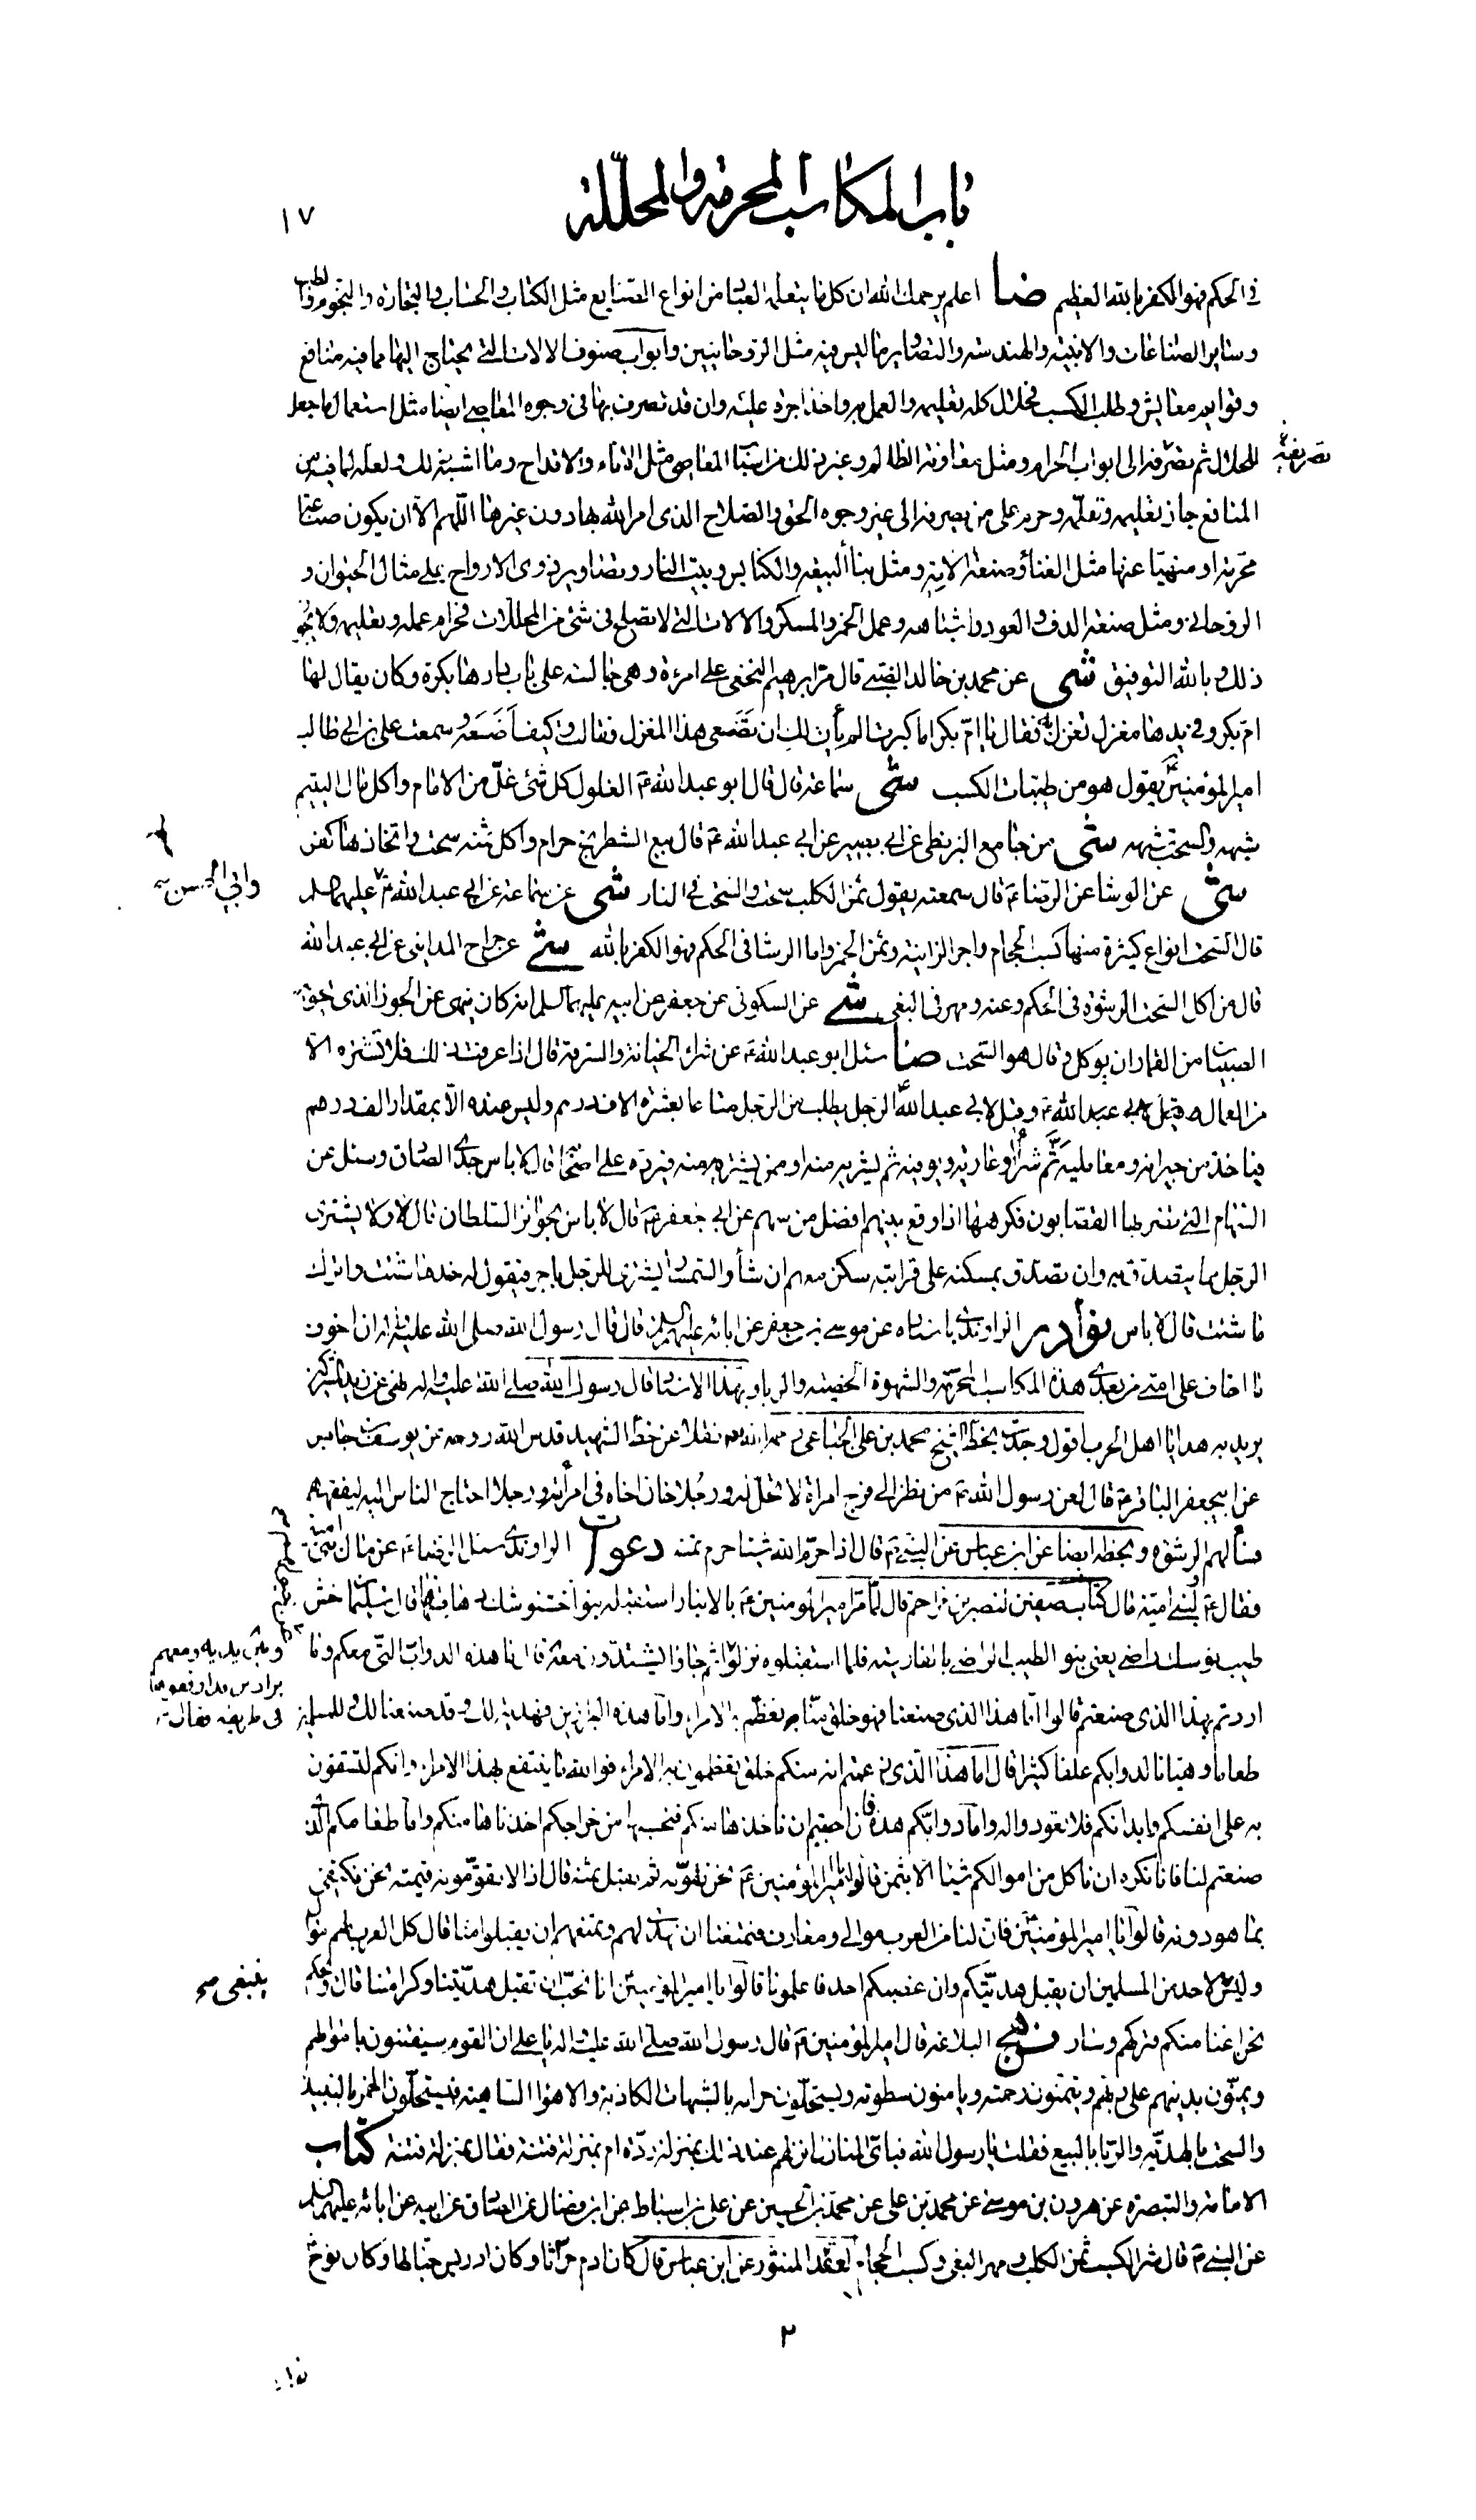 باب المكاسب المحرمة والمحللة
١٧
في الحكم فهو الكفر بالله العظيم ضا اعلم يرحمك الله ان كل ما يتعلمه العباد من انواع الصنايع مثل الكتاب والحساب والتجارة والنجوم والطب
وساير الصناعات والابنية والهندسة والتصاوير ما ليس فيه مثل الروحانيين وابواب صنوف الالات التي يحتاج اليها مما فيه منافع
وفوايد معايش وطلب الكسب فحلال كله تعليمه والعمل به واخذ اجرة عليه وان قد تصرف بها في وجوه المعاصي ايضا مثل استعمال ما جعل
للحلال ثم تصرفه الى ابواب الحرام ومثل معاونة الظالم وغير ذلك من اسباب المعاصي مثل الاناء والاقداح وما اشبه ذلك ولعلة ما فيه من
تصريفه
المنافع جاز تعليمه وتعلمه وحرم على من يصرفه الى غير وجوه الحق والصلاح الذي امر الله بها دون غيرها اللهم الا ان يكون صناعة
محرمة او منهيا عنها مثل الغناء وصنعة الاته ومثل بناء البيعة والكنايس وبيت النار وتصاوير ذوي الارواح على مثال الحيوان و
الروحاني ومثل صنعة الدف والعود واشباهه وعمل الخمر والمسكر والالات التي لا تصلح في شئ من المحللات فحرام عمله وتعليمه ولا يجوز
ذلك وبالله التوفيق شى عن محمد بن خالد الضبي قال مر ابرهيم النخعي على امرءة وهي جالسة على باب دارها بكرة وكان يقال لها
ام بكر وفي يدها مغزل تغزل به فقال يا ام بكر اما كبرت الم يأن لك ان تضعي هذا المغزل فقالت وكيف اضعه وسمعت علي بن ابي طالب
امير المؤمنين ع يقول هو من طيبات الكسب شى سماعة قال قال ابو عبد الله ع الغلول كل شئ غل من الامام واكل مال اليتيم
شبهه والسحت شبهه شى من جامع البزنطي عن ابي بصير عن ابي عبد الله ع قال بيع الشطرنج حرام واكل ثمنه سحت واتخاذها كفر
شى عن الوشا عن الرضا ع قال سمعته يقول ثمن الكلب سحت والسحت في النار شى عن سماعة عن ابي عبد الله ع عليهما السلم
وابي الحسن
قال السحت انواع كثيرة منها كسب الحجام واجر الزانية وثمن الخمر واما الرشا في الحكم فهو الكفر بالله شى عن جراح المدايني عن ابي عبد الله
قال من اكل السحت الرشوة في الحكم وعنه ومهر البغي شى عن السكوني عن جعفر عن ابيه عليهما السلم انه كان ينهى عن الجوز الذي يحويه
الصبيان من القمار ان يوكل وقال هو السحت ضا سئل ابو عبد الله ع عن شراء الخيانة والسرقة قال اذا عرفت ذلك فلا تشتره الا
من العمال وقيل لابي عبد الله ع الرجل يطلب من الرجل متاعا بعشرة الاف درهم وليس عنده الا بمقدار الف درهم
فياخذ من جيرانه ومعامليه ثم شراء او عارية ويوفيه ثم يشتريه منه او ممن يشتريه منه فيرده على اصحابه قال لا باس وسئل عن
السهام التي يضربها القصابون فكرهها اذا وقع بينهم افضل من سهم عن ابي جعفر ع قال لا باس بجوائز السلطان قال ولا يشتري
الرجل مما يتصدق به وان تصدق بمسكنه على قرابته سكن معهم ان شاء والسمسار يشتري للرجل باجر فيقول له خذ ما شئت واترك
ما شئت قال لا باس نوادر الراوندي باسناده عن موسى بن جعفر عن ابائه عليهم السلم قال قال رسول الله صلى الله عليه واله ان اخوف
ما اخاف على امتي من بعدي هذه المكاسب المحرمة والشهوة الخفية والربا وبهذا الاسناد قال رسول الله صلى الله عليه واله نهى عن زبد المشركين
يريد به هدايا اهل الحرب اقول وجدت بخط الشيخ محمد بن علي الجباعي رحمه الله نقلا عن خط الشهيد قدس الله روحه عن يوسف بن جابر
عن ابي جعفر الباقر ع قال لعن رسول الله ص من نظر الى فرج امراة لا تحل له ورجلا خان اخاه في امرأته ورجلا احتاج الناس اليه ليفقههم
فسألهم الرشوة وبخطه ايضا عن ابن عباس عن النبي ص قال اذا حرم الله شيئا حرم ثمنه دعوات الراوندي سئل الرضا ع عن مال بني امية
فقال ع لبني امية قال كتاب صفين لنصر بن مزاحم قال لما مر امير المؤمنين ع بالانبار استقبله بنو خشنوشك دهاقينها قال سليمان خش
طيب نوشك راضي يعني بنو الطيب الراضي بالفارسية فلما استقبلوه نزلوا ثم جاؤا يشتدون معه قال ما هذه الدواب التي معكم وما
وبين يديه ومعهم
براذين قد اوقفوها
في طريقه فقال
اردتم بهذا الذي صنعتم قالوا اما هذا الذي صنعنا فهو خلق منا نعظم به الامراء واما هذه البراذين فهدية لك وقد صنعنا لك وللمسلمين
طعاما وهيانا لدوابكم علفا كثيرا قال اما هذا الذي زعمتم انه منكم خلق تعظمون به الامراء فوالله ما ينتفع بهذا الامراء وانكم لتشقون
به على انفسكم وابدانكم فلا تعودوا له واما دوابكم هذه فان احببتم ان ناخذها منكم فنحسبها من خراجكم اخذناها منكم واما طعامكم الذي
صنعتم لنا فانا نكره ان ناكل من اموالكم شيئا الا بثمن قالوا يا امير المؤمنين ع نحن نقومه ثم نقبل ثمنه قال اذا لا تقومونه قيمته نحن نكتفي
بما هو دونه قالوا يا امير المؤمنين فان لنا من العرب موالي ومعارف فتمنعنا ان نهدي لهم وتمنعهم ان يقبلوا منا قال كل العرب لكم موال
وليس لاحد من المسلمين ان يقبل هديتكم وان غصبكم احد فاعلمونا قالوا يا امير المؤمنين انا نحب ان تقبل هديتنا وكرامتنا قال ويحكم
ينبغي صح
نحن اغنا منكم فتركهم وسار نهج البلاغة قال امير المؤمنين ع قال رسول الله صلى الله عليه واله يا علي ان القوم سيفتنون باموالهم
ويمنون بدينهم على ربهم ويتمنون رحمته ويامنون سطوته ويستحلون حرامه بالشبهات الكاذبة والاهواء الساهية فيستحلون الخمر بالنبيذ
والسحت بالهدية والربا بالبيع فقلت يا رسول الله فباي المنازل انزلهم عند ذلك بمنزلة ردة ام بمنزلة فتنة فقال بمنزلة فتنة كتاب
الامامة والتبصرة عن هرون بن موسى عن محمد بن علي عن محمد بن الحسين عن علي بن اسباط عن ابن فضال عن الصادق عن ابيه عن ابائه عليهم السلم
عن النبي ص قال شر الكسب ثمن الكلب ومهر البغي وكسب الحجام الدر المنثور عن ابن عباس قال كان ادم حراثا وكان ادريس خياطا وكان نوح
٢